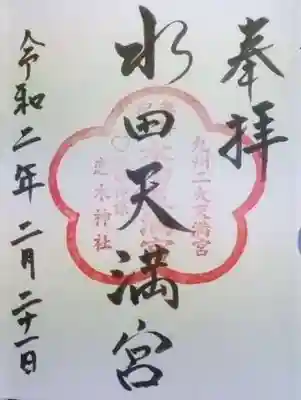 奉拝
九州二大天満宮
水田天満宮
恋木神社
令和二年二月二十一日